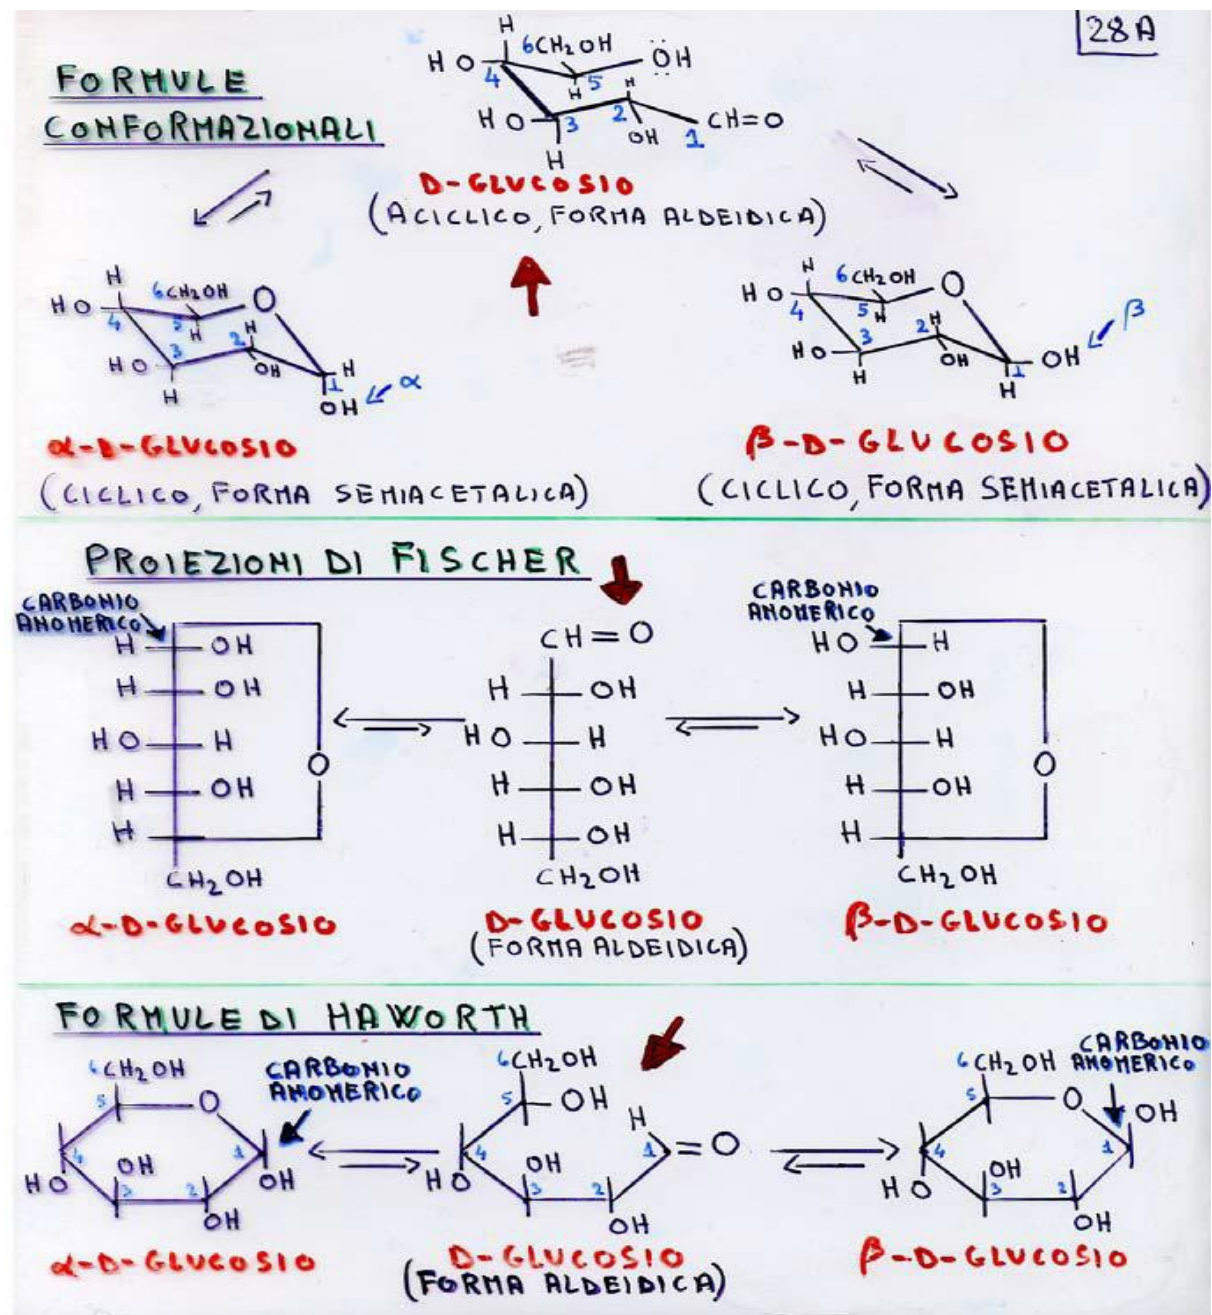 28A
FORMULE
CONFORMAZIONALI
H
HO
4
6CH2OH
5
H
OH
HO
3
H
2
H
OH
1
CH=O
D-GLUCOSIO
(ACICLICO, FORMA ALDEIDICA)
H
HO
4
6CH2OH
O
5
H
HO
3
H
2
H
OH
1
H
OH
α
α-D-GLUCOSIO
(CICLICO, FORMA SEMIACETALICA)
H
HO
4
6CH2OH
O
5
H
HO
3
H
2
H
OH
1
H
OH
β
β-D-GLUCOSIO
(CICLICO, FORMA SEMIACETALICA)
PROIEZIONI DI FISCHER
CARBONIO
ANOMERICO
H OH
H OH
HO H
H OH
H
O
CH2OH
α-D-GLUCOSIO
CH=O
H OH
HO H
H OH
H OH
CH2OH
D-GLUCOSIO
(FORMA ALDEIDICA)
CARBONIO
ANOMERICO
HO H
H OH
HO H
H OH
H
O
CH2OH
β-D-GLUCOSIO
FORMULE DI HAWORTH
6CH2OH
CARBONIO
ANOMERICO
5
O
4
1
HO
OH
3
2
OH
OH
α-D-GLUCOSIO
6CH2OH
5
OH
H
4
1
=O
HO
OH
3
2
OH
D-GLUCOSIO
(FORMA ALDEIDICA)
6CH2OH
CARBONIO
ANOMERICO
5
O
OH
4
1
HO
OH
3
2
OH
β-D-GLUCOSIO